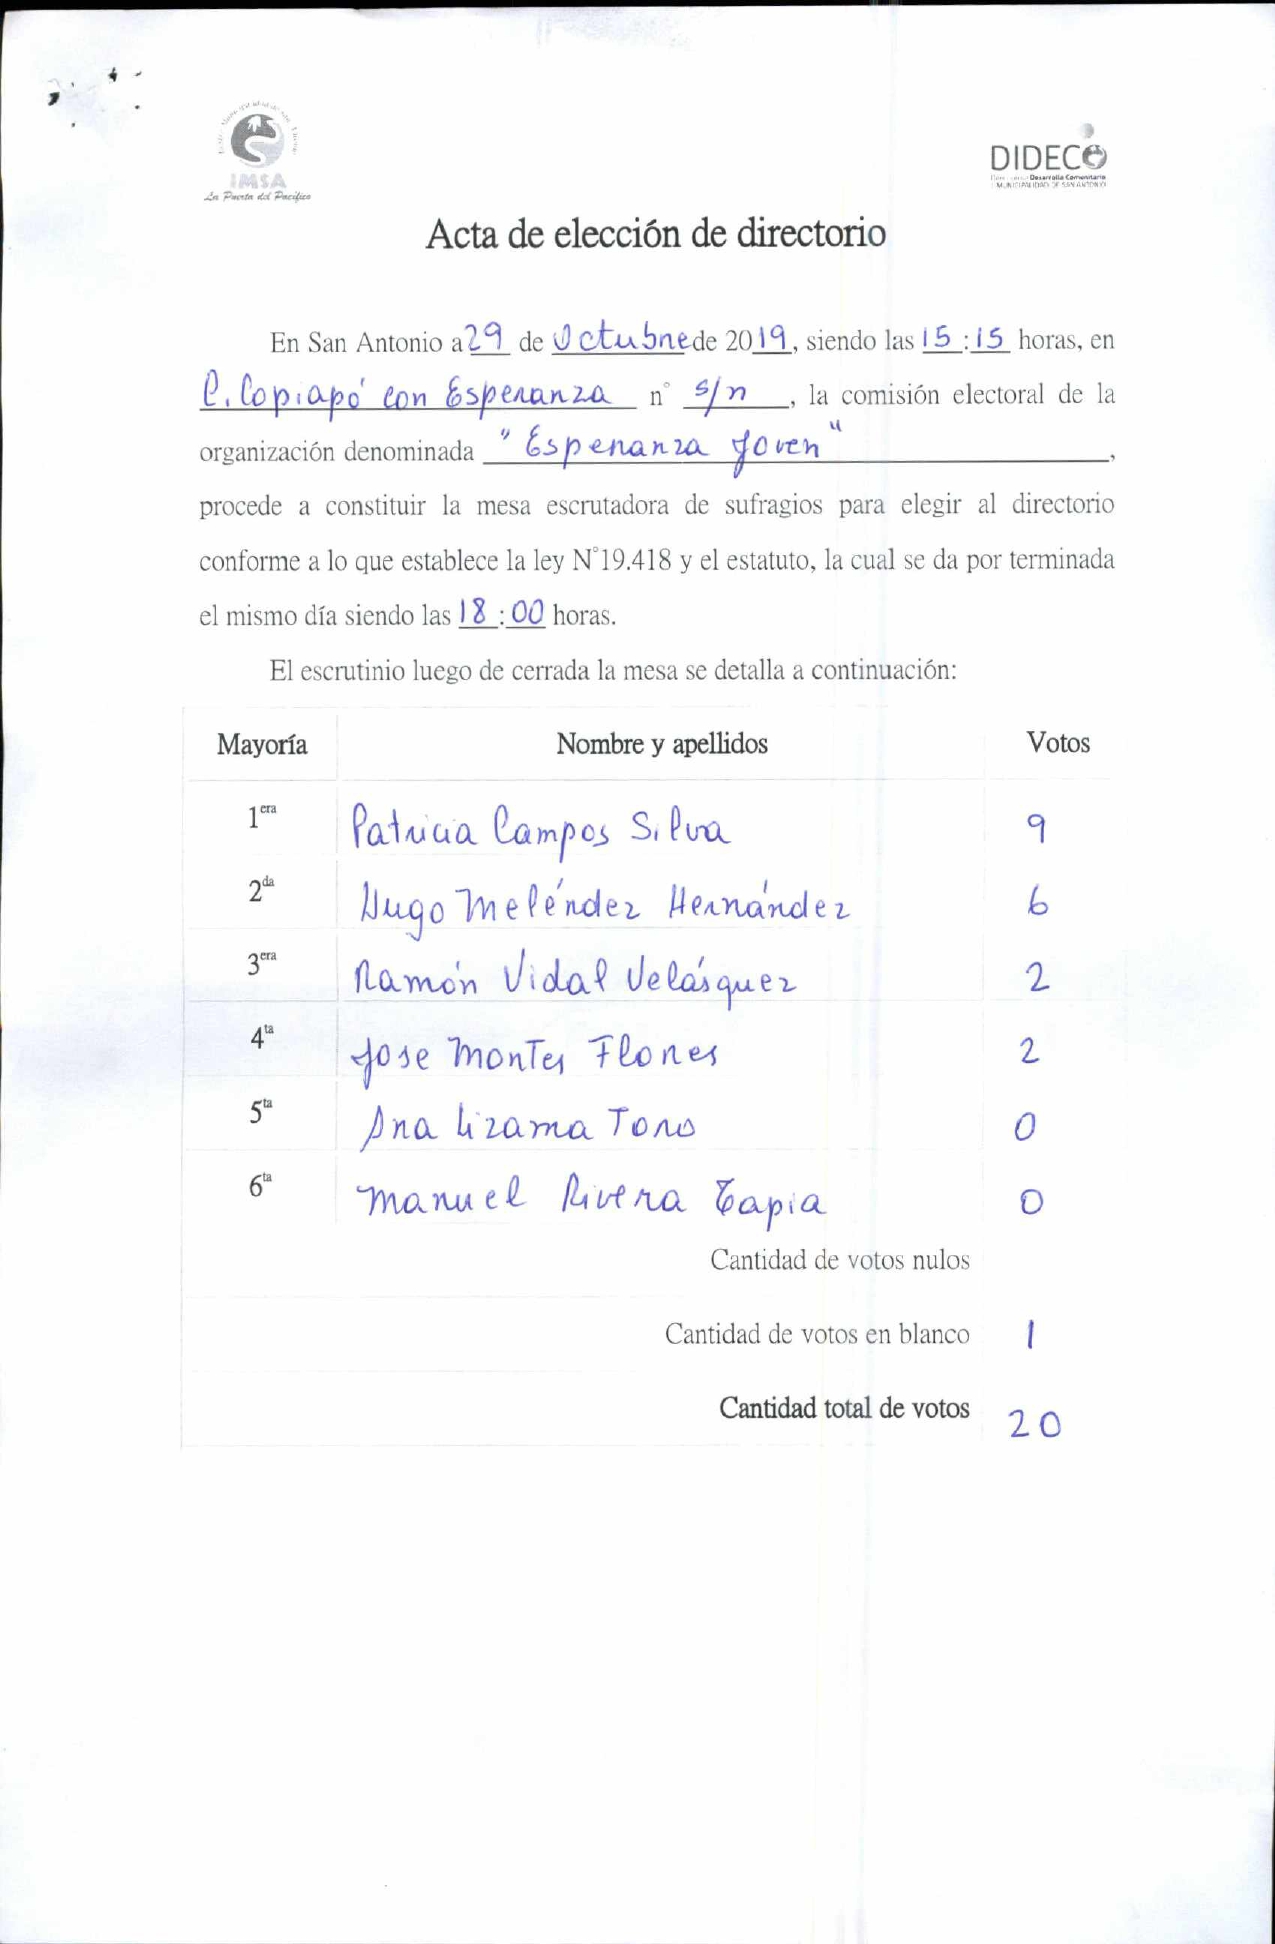 IMSA
La Puerta del Pacífico
DIDECO
Desarrollo Comunitario
MUNICIPALIDAD DE SAN ANTONIO
Acta de elección de directorio
En San Antonio a 29 de Octubre de 2019, siendo las 15:15 horas, en
C. Copiapó con Esperanza n° s/n, la comisión electoral de la
organización denominada "Esperanza Joven",
procede a constituir la mesa escrutadora de sufragios para elegir al directorio
conforme a lo que establece la ley N°19.418 y el estatuto, la cual se da por terminada
el mismo día siendo las 18:00 horas.
El escrutinio luego de cerrada la mesa se detalla a continuación:
Mayoría Nombre y apellidos Votos
1era Patricia Campos Silva 9
2da Hugo Meléndez Hernández 6
3era Ramón Vidal Velásquez 2
4ta Jose Montes Flores 2
5ta Ana Lizama Toro 0
6ta Manuel Rivera Tapia 0
Cantidad de votos nulos
Cantidad de votos en blanco 1
Cantidad total de votos 20